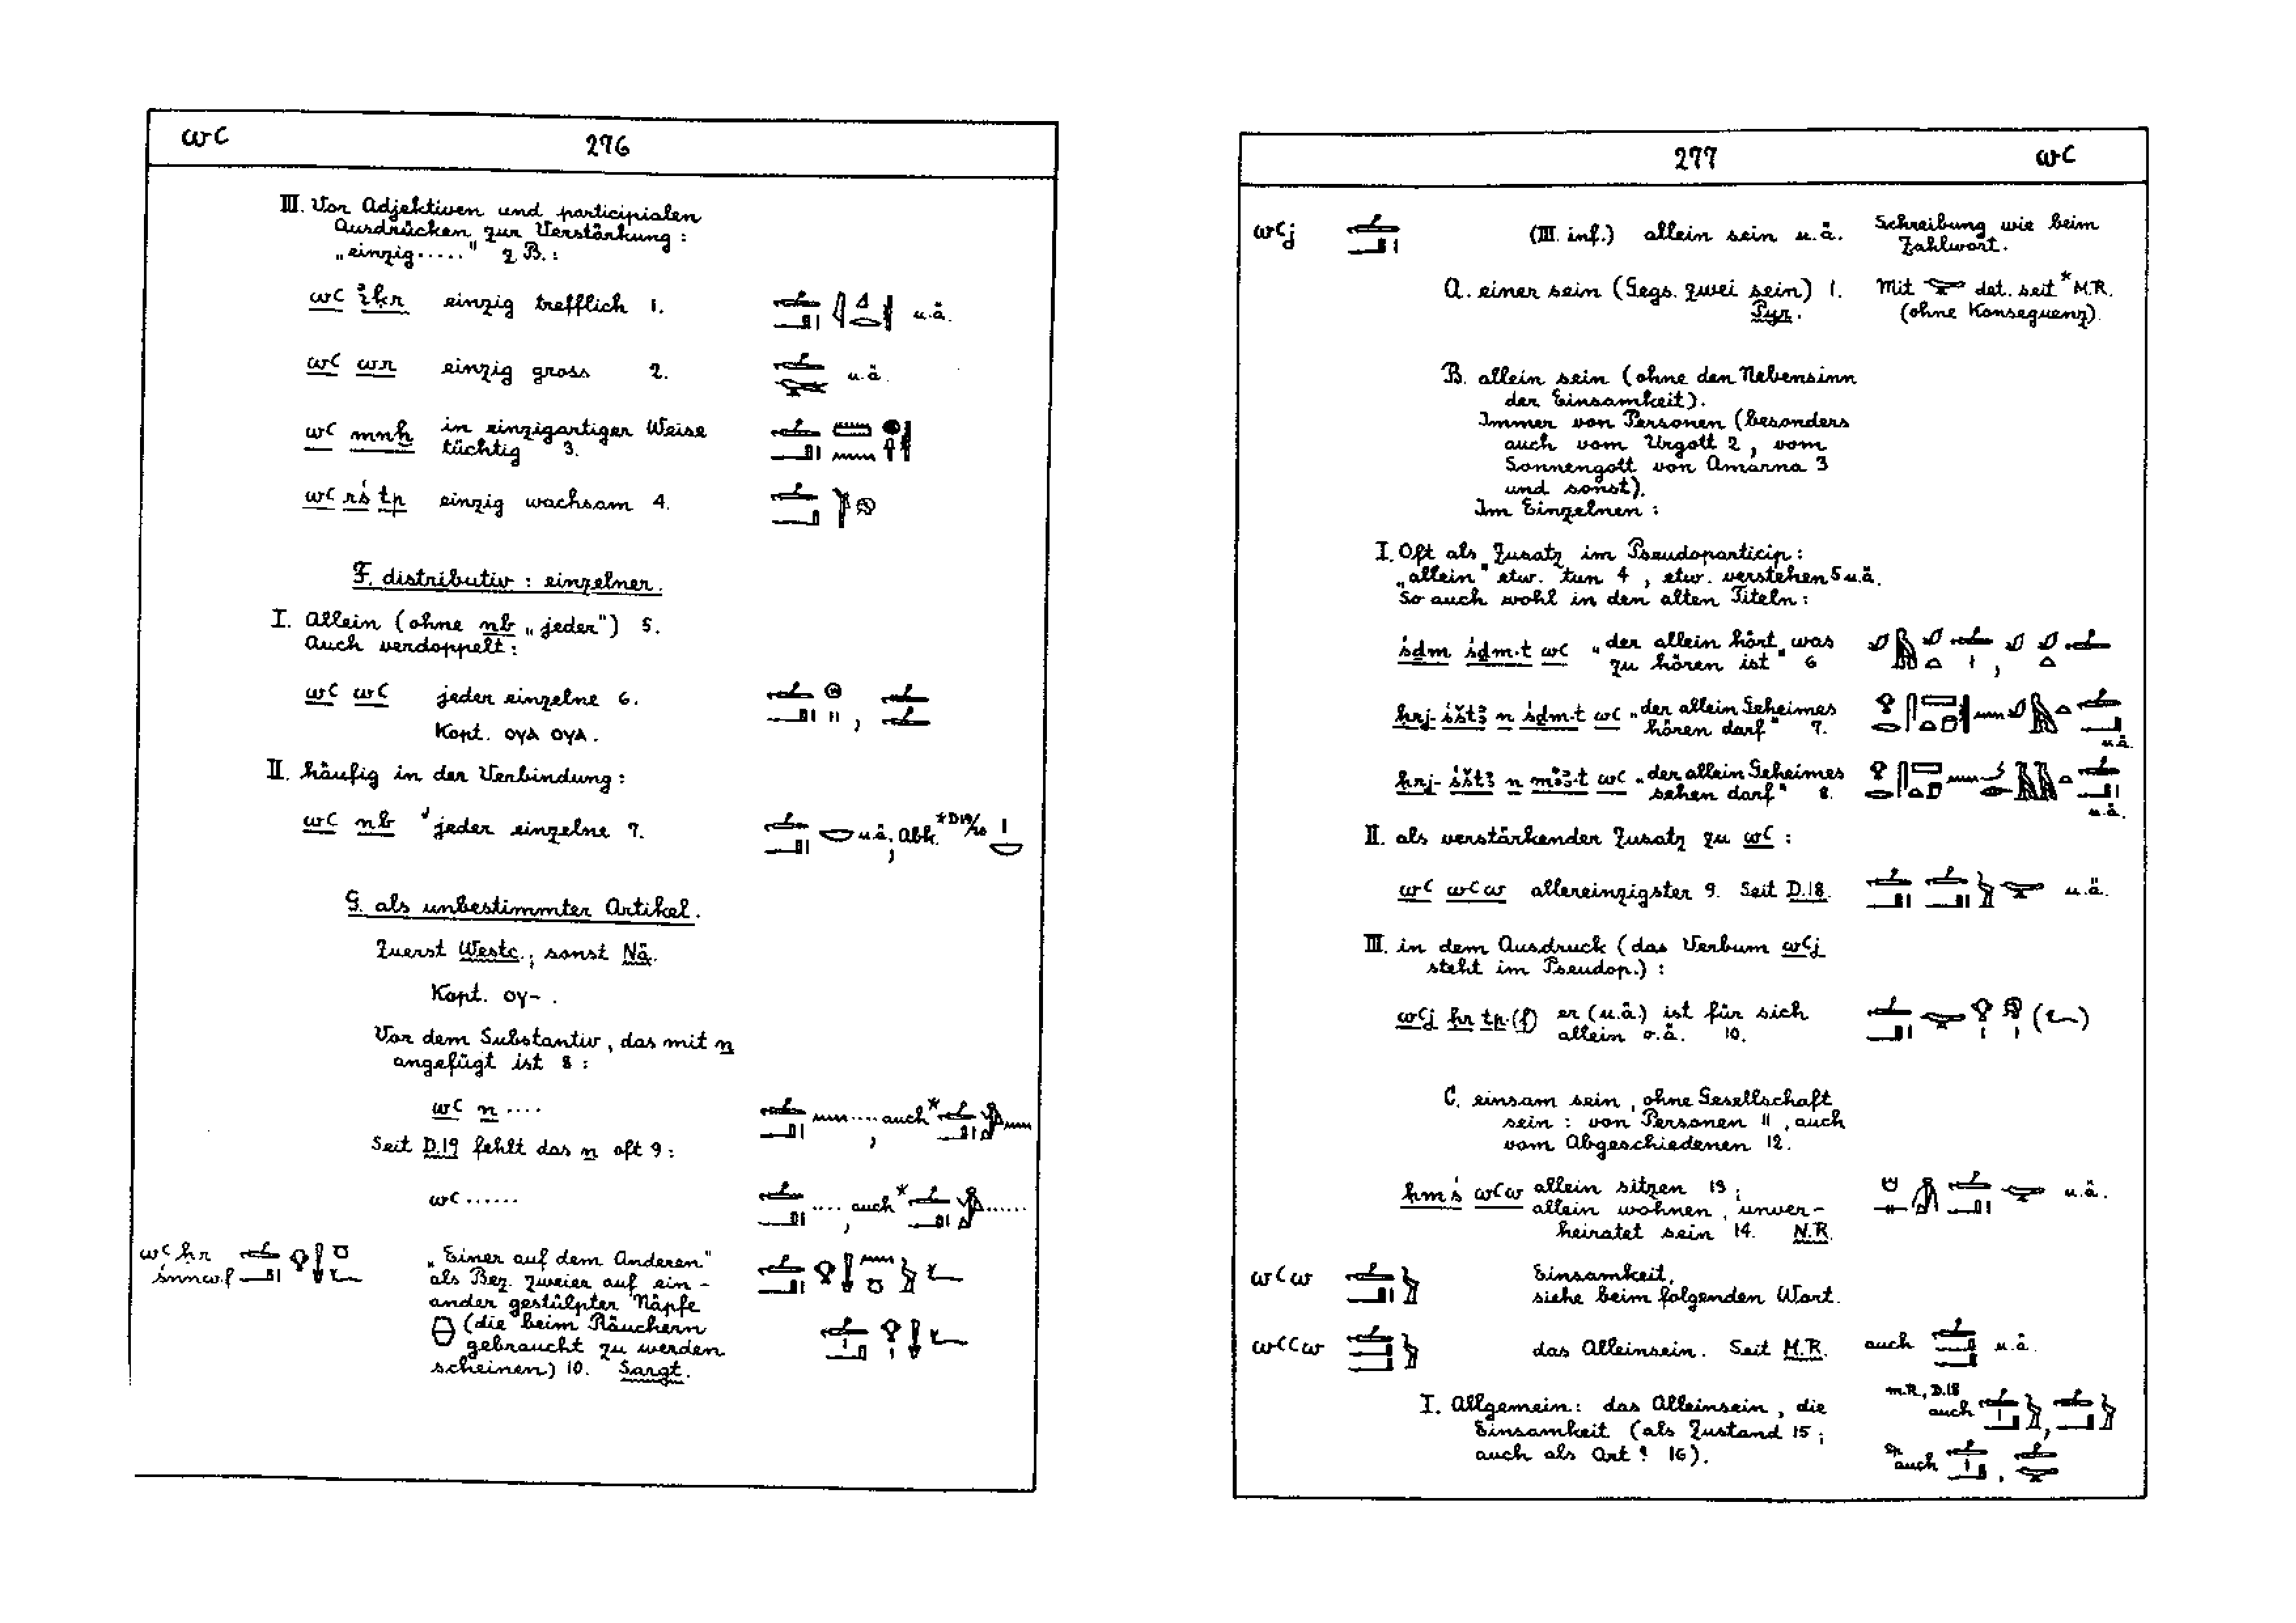 wꜥ 276
III. Vor Adjektiven und participialen
Ausdrücken zur Verstärkung:
„einzig....." z.B.:
wꜥ ı͗ḳr einzig trefflich 1. u.ä.
wꜥ wr einzig gross 2. u.ä.
wꜥ mnḫ in einzigartiger Weise
tüchtig 3.
wꜥ rś tp einzig wachsam 4.
F. distributiv: einzelner.
I. Allein (ohne nb „jeder") 5.
Auch verdoppelt:
wꜥ wꜥ jeder einzelne 6.
Kopt. ⲟⲩⲁ ⲟⲩⲁ.
II. häufig in der Verbindung:
wꜥ nb jeder einzelne 7. u.ä., Abk. *D19/20
G. als unbestimmter Artikel.
Zuerst Westc.; sonst Nä.
Kopt. ⲟⲩ-.
Vor dem Substantiv, das mit n
angefügt ist 8:
wꜥ n .... .... , auch*
Seit D.19 fehlt das n oft 9:
wꜥ ...... .... , auch* ......
wꜥ ḥr
śnnw.f
„Einer auf dem Anderen"
als Bez. zweier auf ein-
ander gestülpter Näpfe
(die beim Räuchern
gebraucht zu werden
scheinen) 10. Sargt.
277 wꜥ
wꜥj (III. inf.) allein sein u.ä. Schreibung wie beim
Zahlwort.
A. einer sein (Gegs. zwei sein) 1. Mit det. seit *M.R.
Pyr. (ohne Konsequenz).
B. allein sein (ohne den Nebensinn
der Einsamkeit).
Immer von Personen (besonders
auch vom Urgott 2, vom
Sonnengott von Amarna 3
und sonst).
Im Einzelnen:
I. Oft als Zusatz im Pseudoparticip:
„allein" etw. tun 4, etw. verstehen 5 u.ä.
So auch wohl in den alten Titeln:
śḏm śḏm·t wꜥ „der allein hört was
zu hören ist" 6
ḥrj-śštꜣ n śḏm·t wꜥ „der allein Geheimes
hören darf" 7. u.ä.
ḥrj-śštꜣ n mꜣꜣ·t wꜥ „der allein Geheimes
sehen darf" 8. u.ä.
II. als verstärkender Zusatz zu wꜥ:
wꜥ wꜥw allereinzigster 9. Seit D.18. u.ä.
III. in dem Ausdruck (das Verbum wꜥj
steht im Pseudop.):
wꜥj ḥr tp.(f) er (u.ä.) ist für sich
allein o.ä. 10.
C. einsam sein, ohne Gesellschaft
sein: von Personen 11, auch
vom Abgeschiedenen 12.
ḥmś wꜥw allein sitzen 13; u.ä.
allein wohnen, unver-
heiratet sein 14. N.R.
wꜥw Einsamkeit,
siehe beim folgenden Wort.
wꜥꜥw das Alleinsein. Seit M.R. auch u.ä.
I. Allgemein: das Alleinsein, die
Einsamkeit (als Zustand 15;
auch als Ort? 16).
M.R., D.18
auch
Sp.
auch